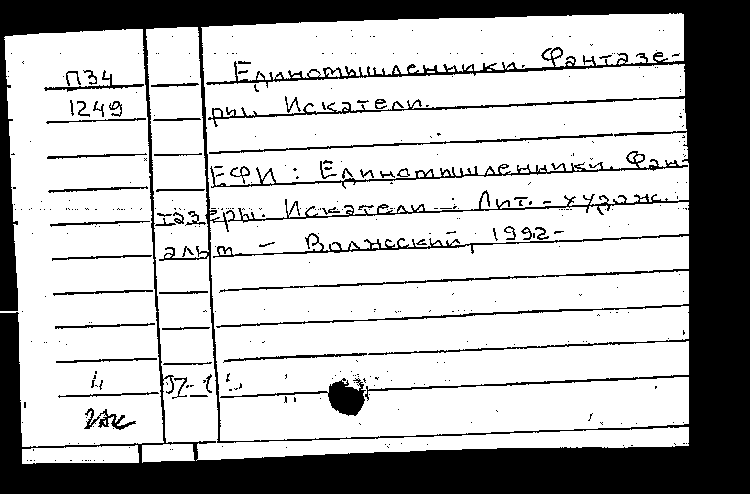 П34
1249
Единомышленники. Фантазе-
ры. Искатели.
ЕФИ : Единомышленники. Фан-
тазеры. Искатели : Лит.-худож.
альм. - Волжский, 1992-